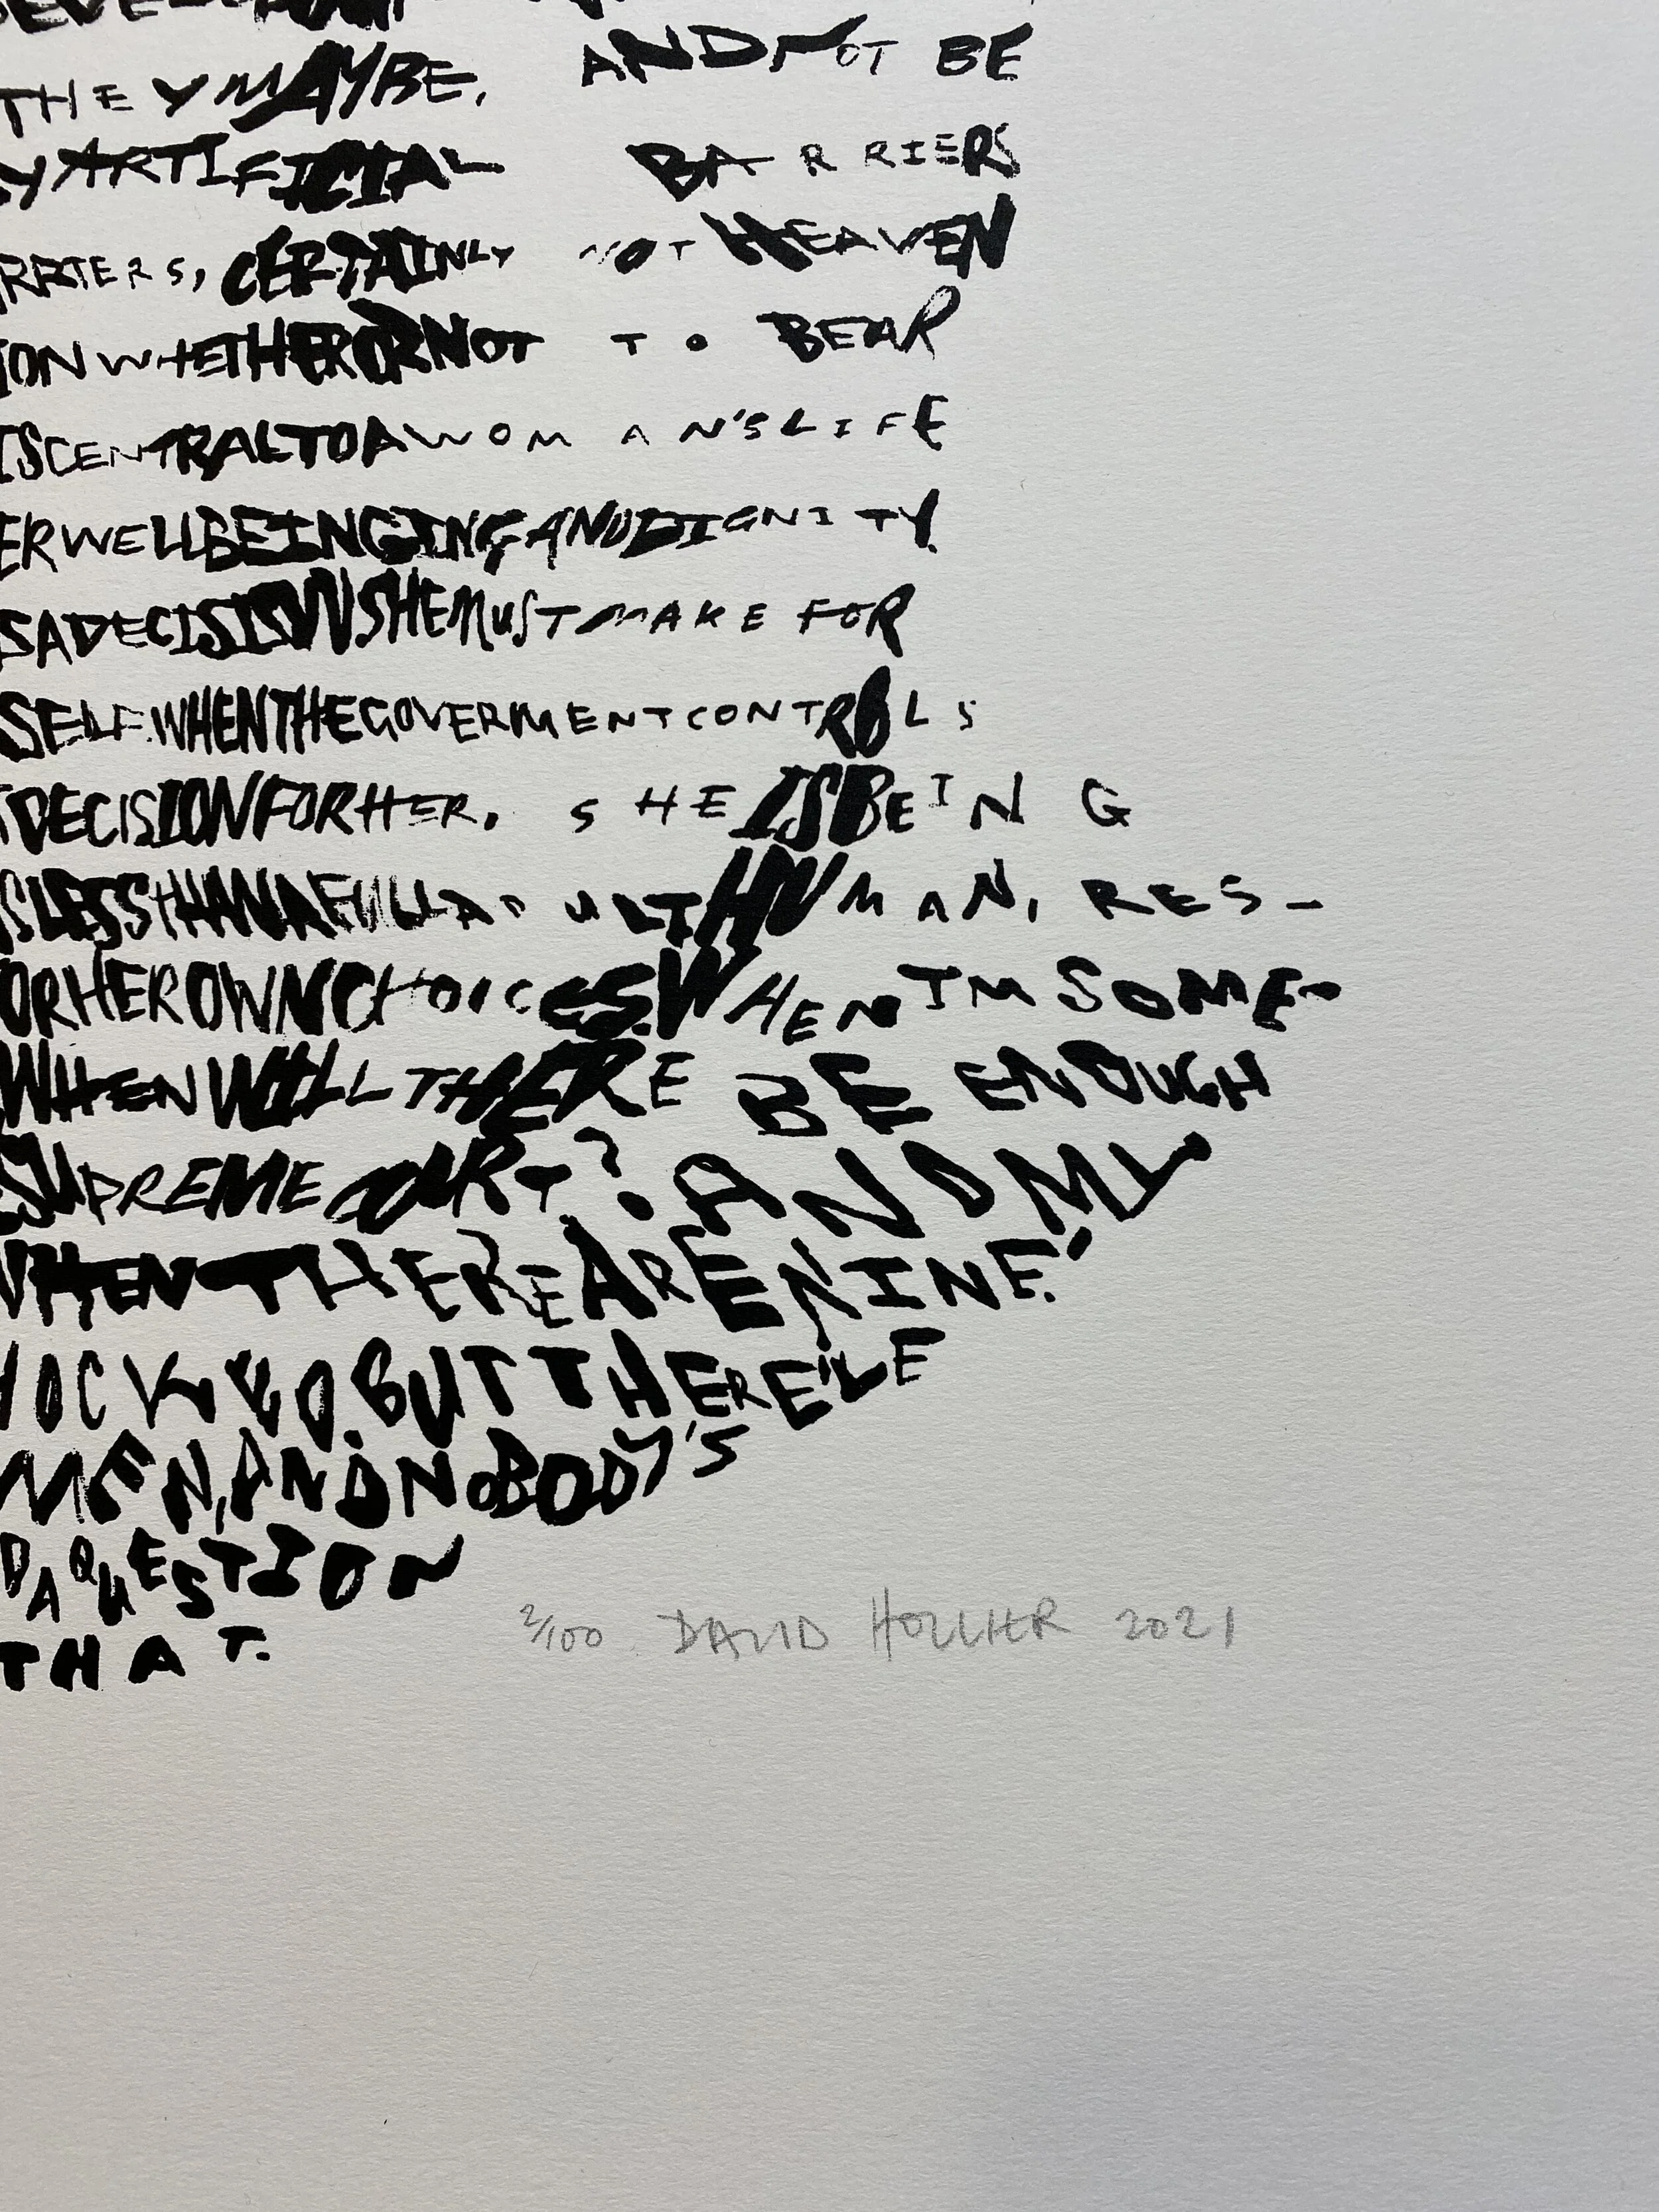 THEY MAYBE, AND NOT BE
Y ARTIFICIAL BARRIERS
RRIERS, CERTAINLY NOT HEAVEN
ION WHETHER OR NOT TO BEAR
IS CENTRAL TO A WOMAN'S LIFE
ER WELLBEINGING AND DIGNITY.
S A DECISISON SHE MUST MAKE FOR
SELF. WHEN THE GOVERMENT CONTROLS
DECISION FOR HER. SHE IS BEING
S LESS THAN A FULL ADULT HUMAN, RES-
OR HER OWN CHOICES. WHEN IM SOME-
WHEN WILL THERE BE ENOUGH
SUPREME COURT? AND MY
WHEN THERE ARE NINE.'
HOCKED. BUT THERE'LE
MEN, AND NOBODY'S
D A QUESTION
THAT.
2/100 DAVID HOLLIER 2021